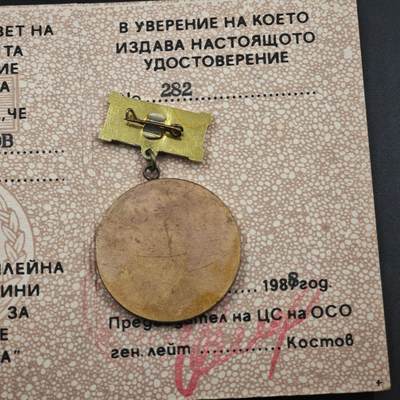 ВЕТ НА
ТА
ИЕ
А
,ЧЕ
ОВ
ИЛЕЙНА
ИНИ
ЗА
Е
А"
В УВЕРЕНИЕ НА КОЕТО
ИЗДАВА НАСТОЯЩОТО
УДОСТОВЕРЕНИЕ
№ 282
1988 год.
Председател на ЦС на ОСО
ген. лейт ............... Костов